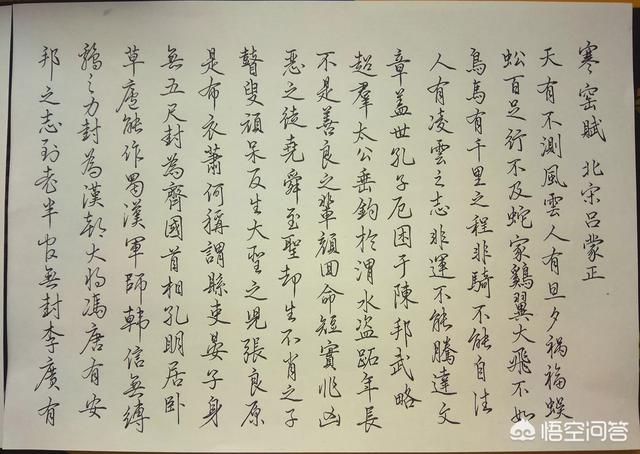 寒窑賦 北宋呂蒙正
天有不測風雲人有旦夕禍福蜈
蚣百足行不及蛇家鷄翼大飛不如
鳥馬有千里之程非騎不能自往
人有凌雲之志非運不能騰達文
章蓋世孔子厄困于陳邦武略
超羣太公垂鈎於渭水盗跖年長
不是善良之輩顔回命短實非凶
惡之徒堯舜至聖却生不肖之子
瞽叟頑呆反生大聖之児張良原
是布衣蕭何稱謂縣吏晏子身
無五尺封為齊國首相孔明居卧
草廬能作蜀漢軍師韓信無縛
鷄之力封為漢朝大将馮唐有安
邦之志到老半官無封李廣有
悟空问答